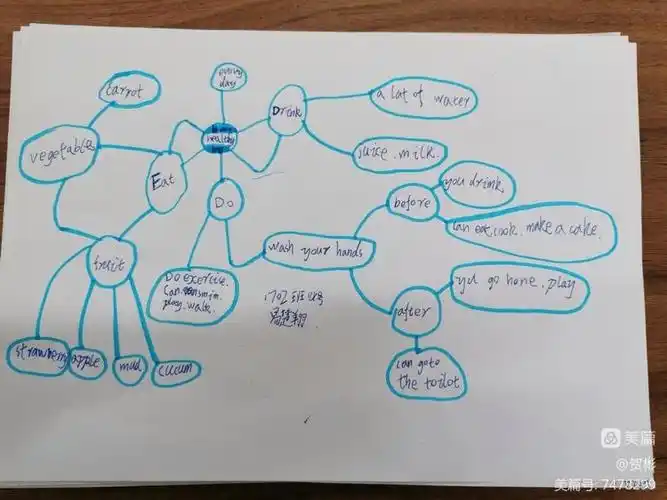 every
day
carrot
healthy
Drink
a lot of water
vegetable
juice.milk.
Eat
Do
you drink.
before
can eat,cook.make a cake.
wash your hands
fruit
Do exercise.
can swim.
play.walk.
1702班
after
yu go home.play
can go to
the toilot
strawberry
apple
mud
cucum
美篇
@贺彬
美篇号: 7478299